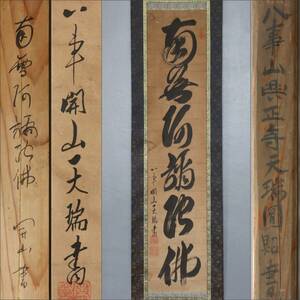 南無阿彌陀佛 開山書
八事開山天瑞書
南無阿彌陀佛
八事開山天瑞書
八事山興正寺天瑞圓照書